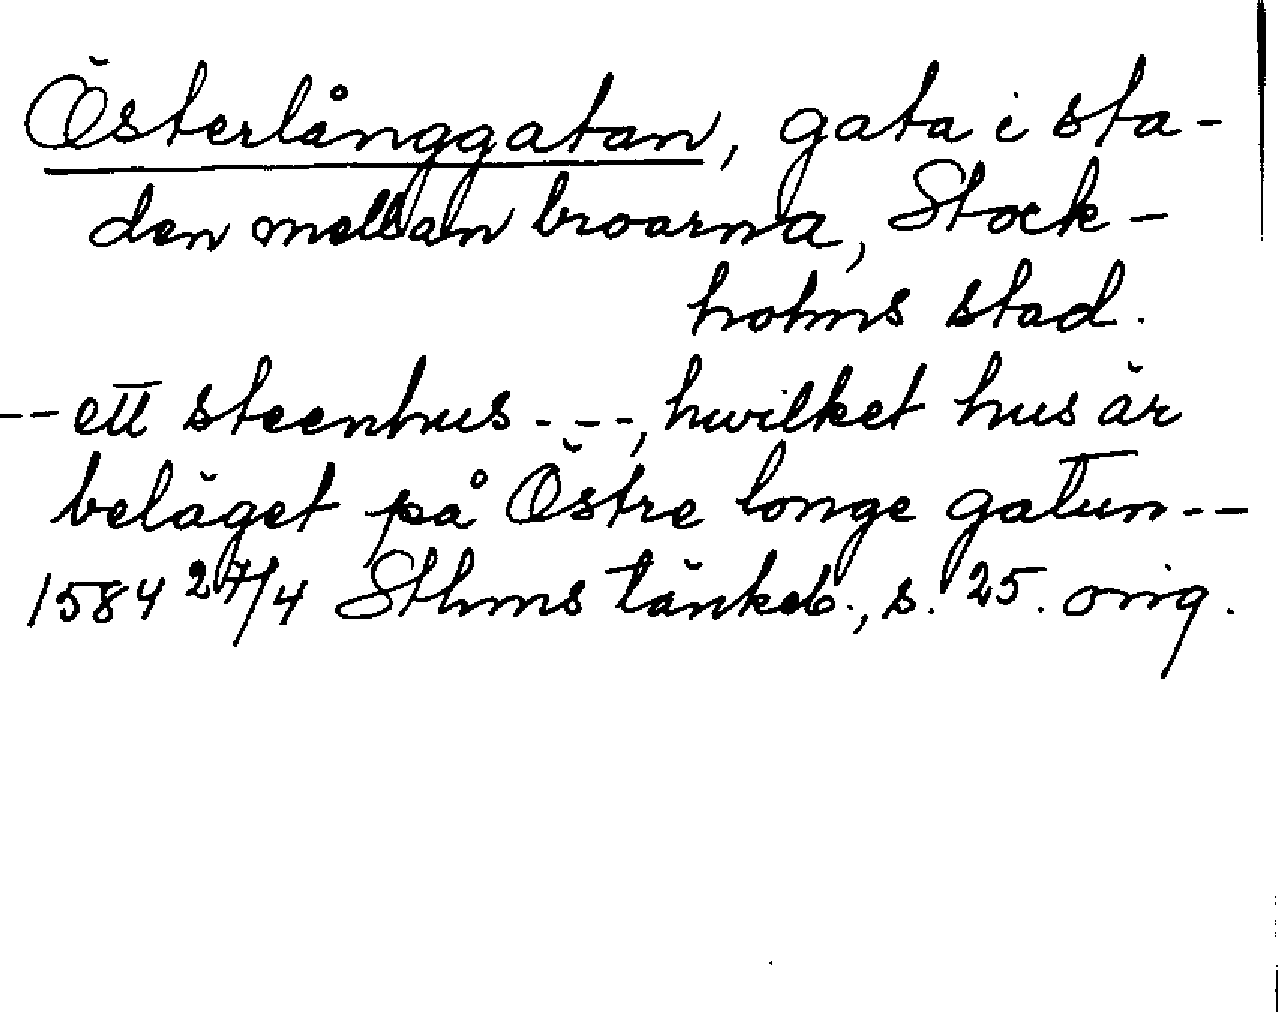 Österlånggatan, gata i sta-
den mellan broarna, Stock-
holms stad.
-- ett steenhus ---, hwilket hus är
beläget på Östre longe gatun--
1584 27/4 Sthms tänkeb., s. 25. orig.